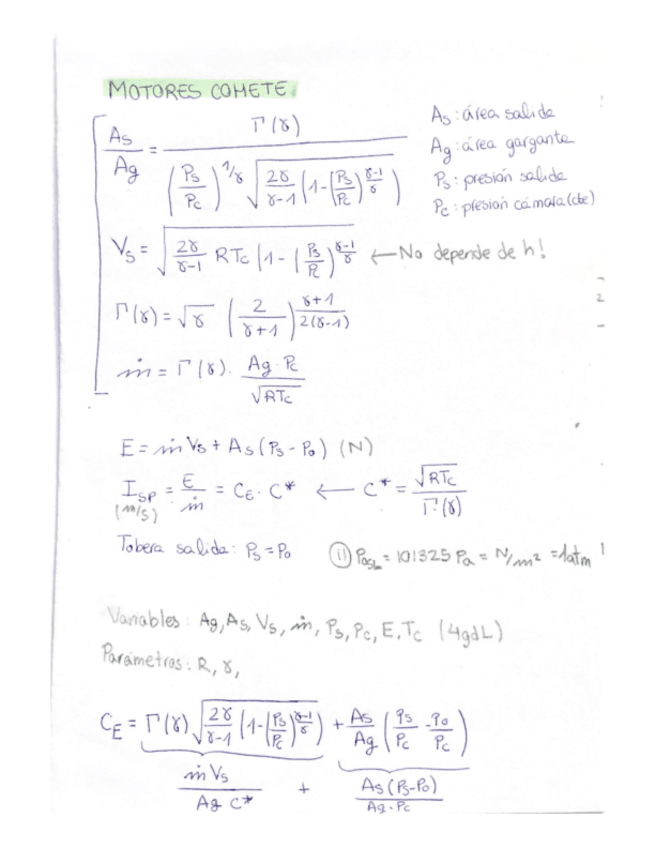 MOTORES COHETE.
As/Ag = Γ(γ) / ((Ps/Pc)^1/γ √(2γ/(γ-1) (1-(Ps/Pc)^(γ-1)/γ)))
As: área salida
Ag: área garganta
Ps: presión salida
Pc: presión cámara (cte)
Vs = √(2γ/(γ-1) RTc (1-(Ps/Pc)^(γ-1)/γ ← No depende de h!
Γ(γ) = √γ (2/(γ+1))^(γ+1)/(2(γ-1))
ṁ = Γ(γ). Ag·Pc/√RTc
E = ṁ Vs + As (Ps - Po) (N)
Isp = E/ṁ = CE · C* ← C* = √RTc/Γ(γ)
(m/s)
Tobera salida: Ps = Po (11) PaSL = 101325 Pa = N/m² = 1atm
Variables: Ag, As, Vs, ṁ, Ps, Pc, E, Tc (4gdL)
Parámetros: R, γ,
CE = Γ(γ) √(2γ/(γ-1) (1-(Ps/Pc)^(γ-1)/γ)) + As/Ag (Ps/Pc - Po/Pc)
ṁ Vs/(Ag C*) + As (Ps-Po)/(Ag·Pc)